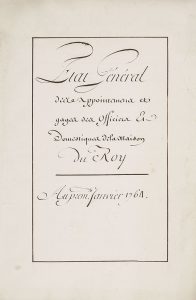 Etat Général
des Appointemens et
gages des Officiers Et
Domestiques de la Maison
Du Roy
Au prem.er Janvier 1764.